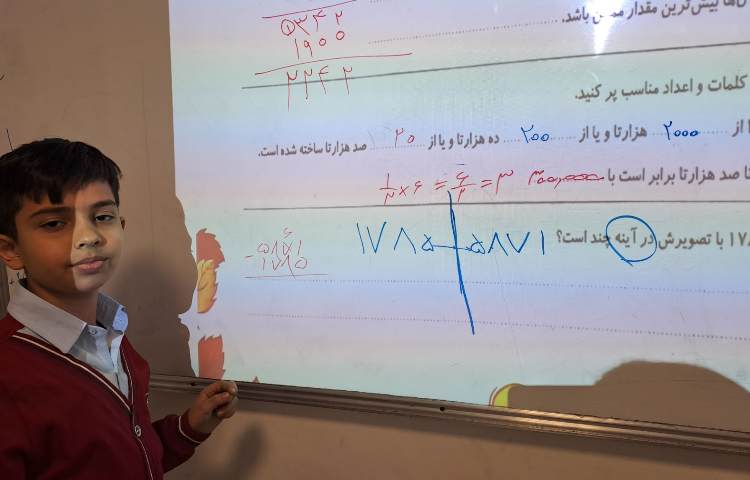 ۱۳۴۲
۱۹۰۰
۲۲۴۲
بیش‌ترین مقدار ممکن باشد.
کلمات و اعداد مناسب پر کنید.
از ۲۰۰۰ هزارتا و یا از ۲۰۰ ده هزارتا و یا از ۲۰ صد هزارتا ساخته شده است.
تا صد هزارتا برابر است با ۳۰۰,۰۰۰ ۳ = ۶/۲ = ۶ × ۱/۲
با تصویرش در آینه چند است؟
۱۷۸۵ ۵۸۷۱
۶
۵۸۷۱
- ۱۷۸۵